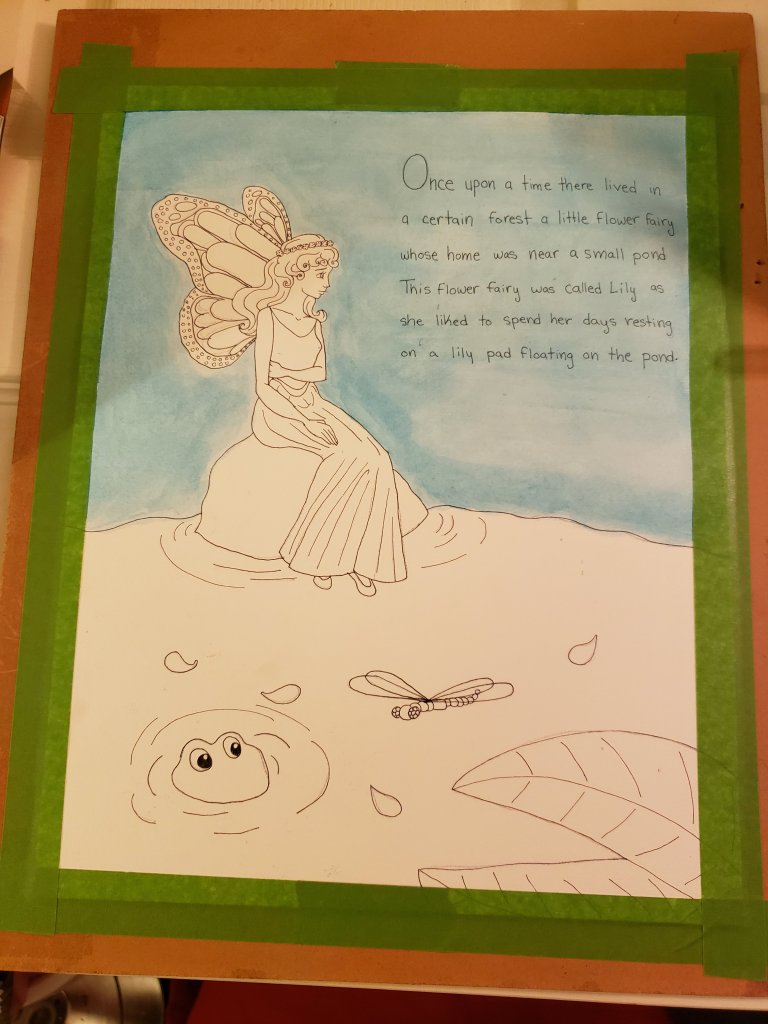 Once upon a time there lived in
a certain forest a little flower fairy
whose home was near a small pond
This flower fairy was called Lily as
she liked to spend her days resting
on a lily pad floating on the pond.